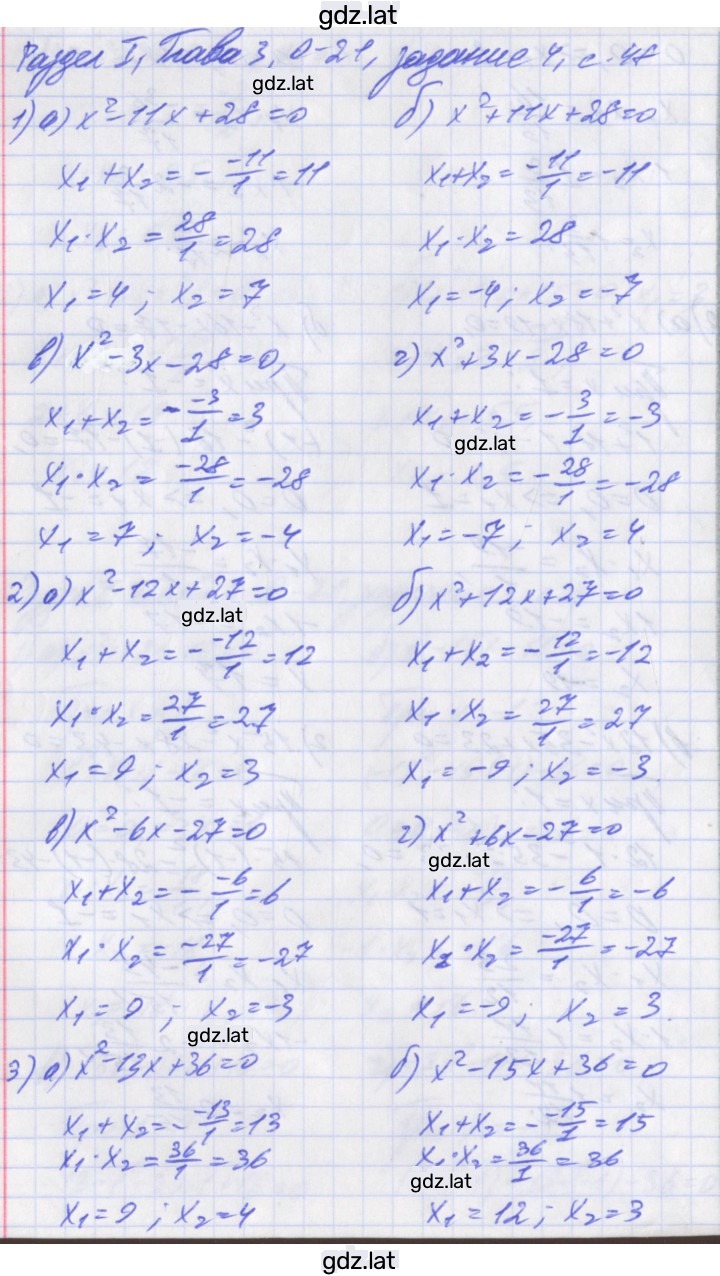 gdz.lat
Раздел I, Глава 3, О-21, задание 4, с. 47
gdz.lat
1) а) x² - 11x + 28 = 0
x₁ + x₂ = - -11/1 = 11
x₁ · x₂ = 28/1 = 28
x₁ = 4 ; x₂ = 7
б) x² + 11x + 28 = 0
x₁ + x₂ = -11/1 = -11
x₁ · x₂ = 28
x₁ = -4 ; x₂ = -7
в) x² - 3x - 28 = 0,
x₁ + x₂ = - -3/1 = 3
x₁ · x₂ = -28/1 = -28
x₁ = 7 ; x₂ = -4
г) x² + 3x - 28 = 0
x₁ + x₂ = - 3/1 = -3
gdz.lat
x₁ · x₂ = - 28/1 = -28
x₁ = -7 ; x₂ = 4.
2) а) x² - 12x + 27 = 0
gdz.lat
x₁ + x₂ = - -12/1 = 12
x₁ · x₂ = 27/1 = 27
x₁ = 9 ; x₂ = 3
б) x² + 12x + 27 = 0
x₁ + x₂ = - 12/1 = -12
x₁ · x₂ = 27/1 = 27
x₁ = -9 ; x₂ = -3.
в) x² - 6x - 27 = 0
x₁ + x₂ = - -6/1 = 6
x₁ · x₂ = -27/1 = -27
x₁ = 9 ; x₂ = -3
gdz.lat
г) x² + 6x - 27 = 0
gdz.lat
x₁ + x₂ = - 6/1 = -6
x₁ · x₂ = -27/1 = -27
x₁ = -9 ; x₂ = 3.
3) а) x² - 13x + 36 = 0
x₁ + x₂ = - -13/1 = 13
x₁ · x₂ = 36/1 = 36
x₁ = 9 ; x₂ = 4
б) x² - 15x + 36 = 0
x₁ + x₂ = - -15/1 = 15
x₁ · x₂ = 36/1 = 36
gdz.lat
x₁ = 12 ; x₂ = 3
gdz.lat